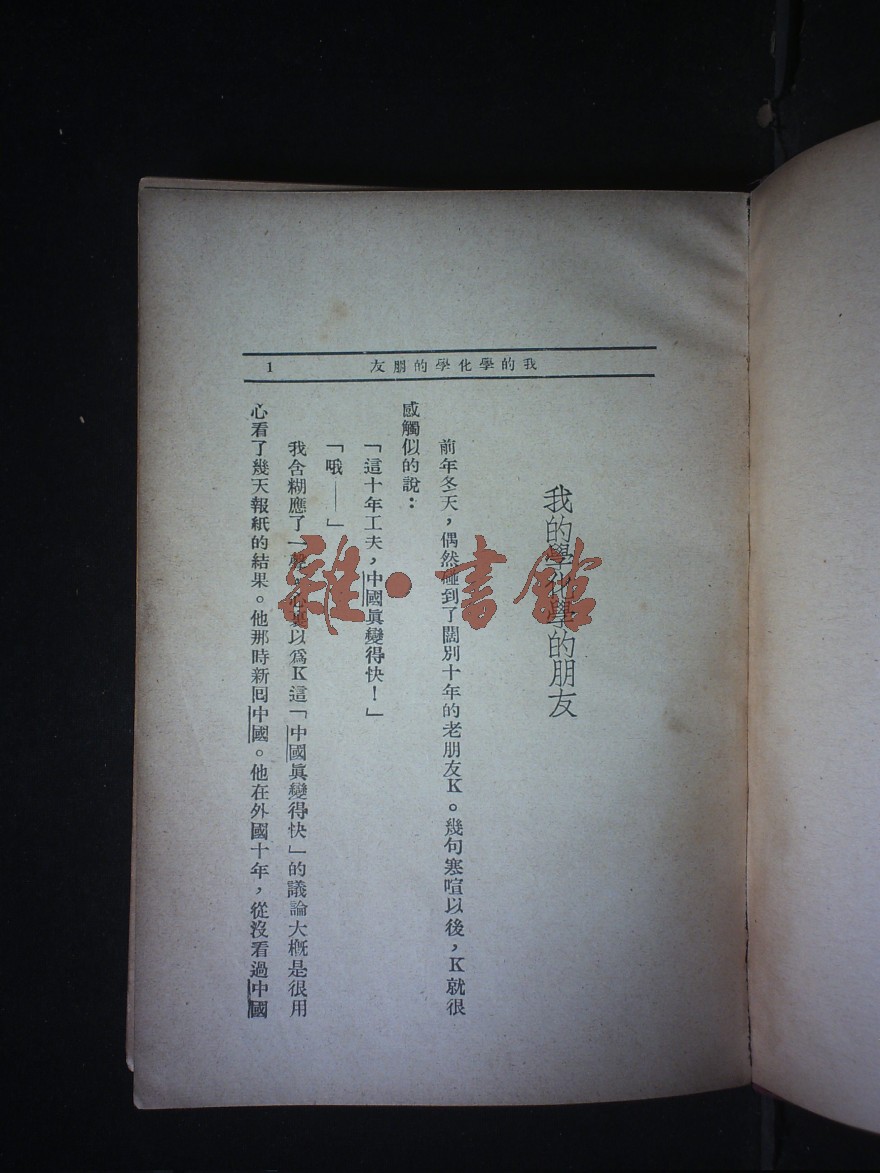 我的學化學的朋友
1
我的學化學的朋友
前年冬天，偶然碰到了闊別十年的老朋友K。幾句寒喧以後，K就很
感觸似的說：
「這十年工夫，中國眞變得快！」
「哦——」
我含糊應了一聲，心裏以爲K這「中國眞變得快」的議論大槪是很用
心看了幾天報紙的結果。他那時新回中國。他在外國十年，從沒看過中國
雜·書館